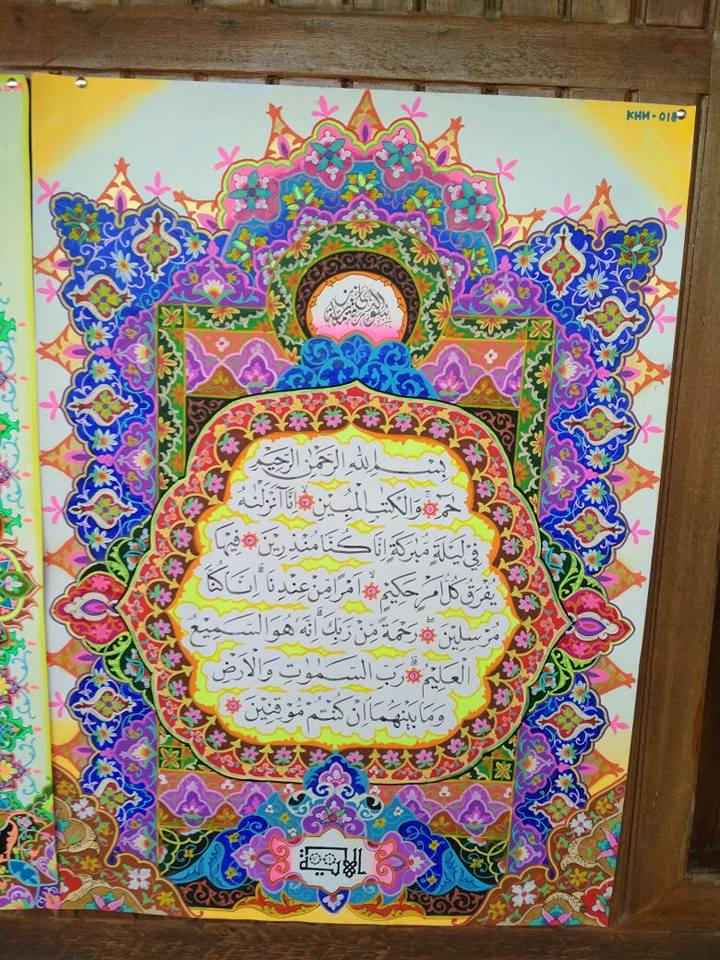 KHM - 018
بِسْمِ اللهِ الرَّحْمٰنِ الرَّحِيْمِ
حٰمۤ ۝ وَالْكِتٰبِ الْمُبِيْنِ ۝ اِنَّآ اَنْزَلْنٰهُ
فِيْ لَيْلَةٍ مُّبٰرَكَةٍ اِنَّا كُنَّا مُنْذِرِيْنَ ۝ فِيْهَا
يُفْرَقُ كُلُّ اَمْرٍ حَكِيْمٍۙ ۝ اَمْرًا مِّنْ عِنْدِنَاۗ اِنَّا كُنَّا
مُرْسِلِيْنَ ۝ رَحْمَةً مِّنْ رَّبِّكَ ۗاِنَّهٗ هُوَ السَّمِيْعُ
الْعَلِيْمُۙ ۝ رَبِّ السَّمٰوٰتِ وَالْاَرْضِ
وَمَا بَيْنَهُمَا اِنْ كُنْتُمْ مُّوْقِنِيْنَ ۝
الاية